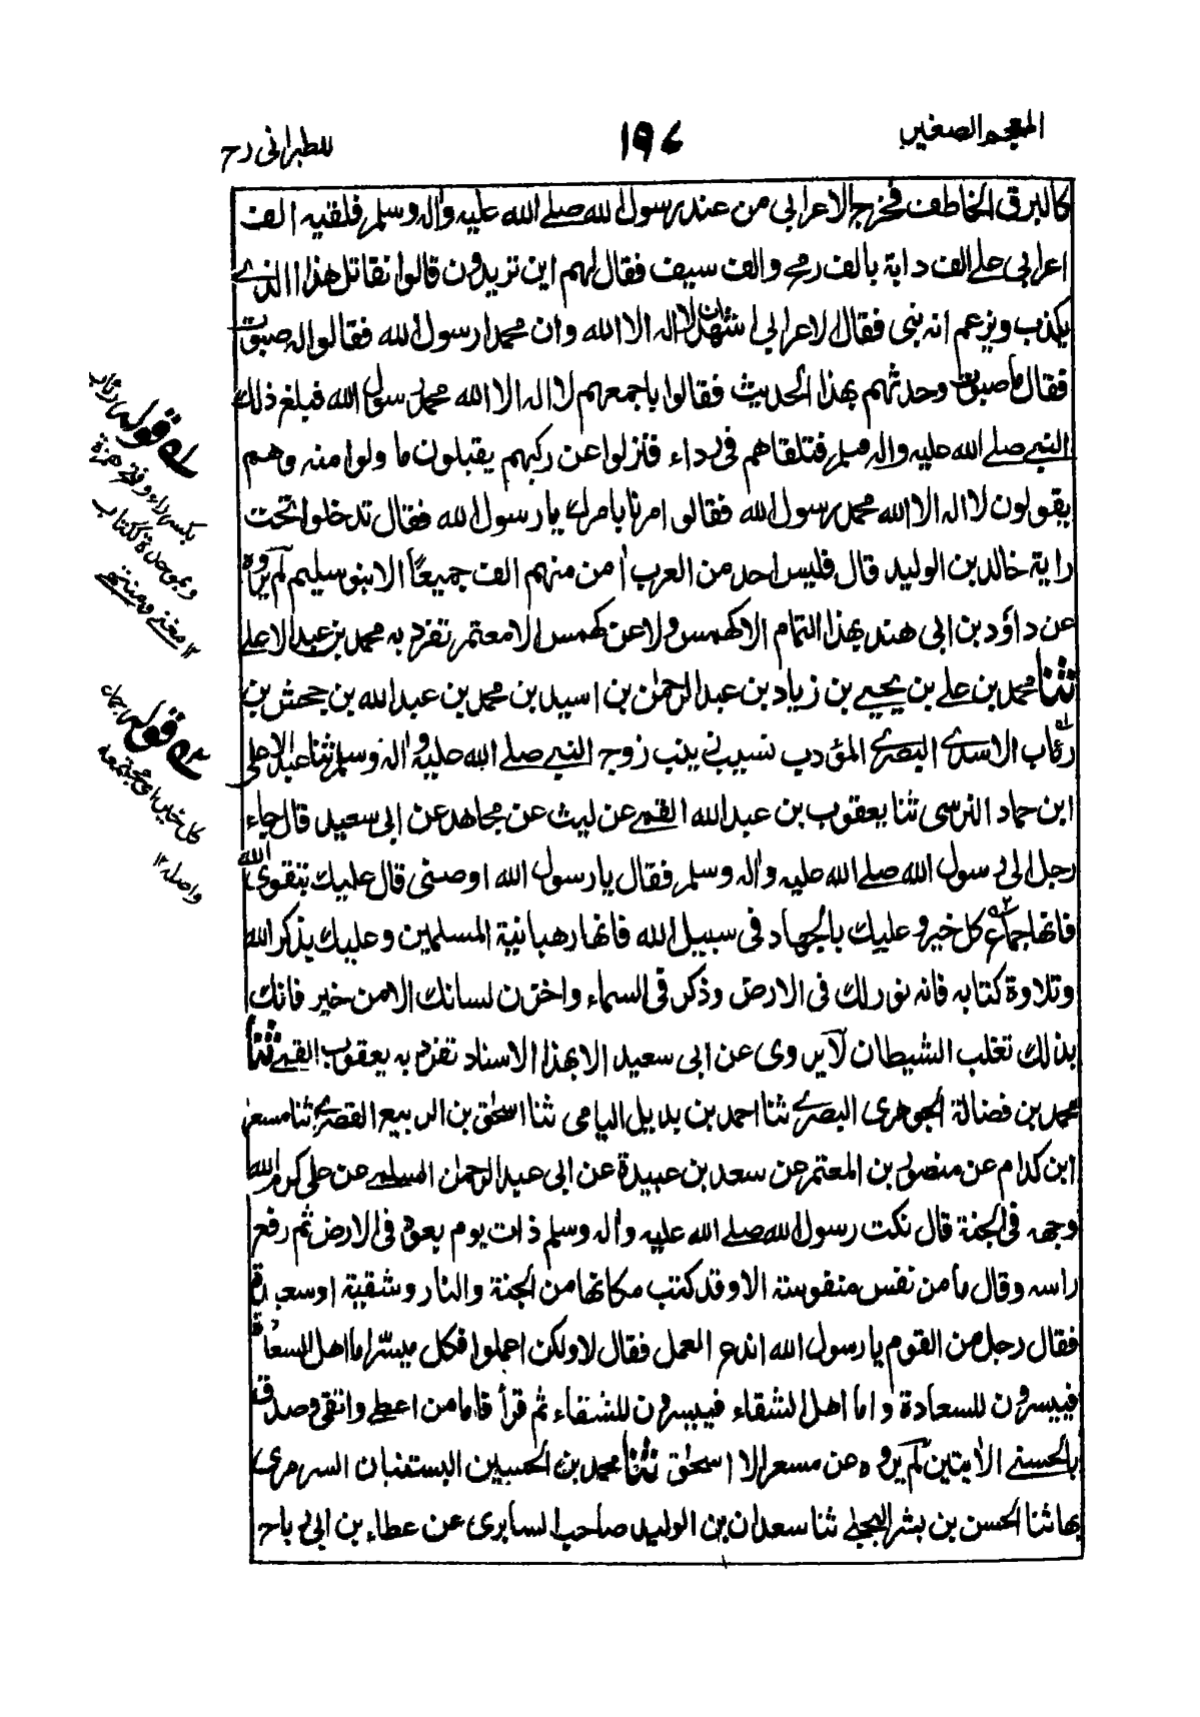 المعجم الصغير
١٩٧
للطبرانی رح
كالبرق الخاطف فخرج الاعرابی من عند رسول الله صلے الله عليه واله وسلم فلقيه الف
اعرابی علے الف دابة بالف رمح والف سيف فقال لهم اين تريدون قالوا نقاتل هذا الذے
يكذب ويزعم انه نبی فقال الاعرابی اشهد ان لا اله الا الله وان محمدا رسول الله فقالوا له صبوت
فقال ما صبوت وحدثهم بهذا الحديث فقالوا باجمعهم لا اله الا الله محمد رسول الله فبلغ ذلك
النبے صلے الله عليه واله وسلم فتلقاهم فی رداء فنزلوا عن ركبهم يقبلون ما ولوا منه وهم
يقولون لا اله الا الله محمد رسول الله فقالوا امرنا بامرك يا رسول الله فقال تدخلوا تحت
راية خالد بن الوليد قال فليس احد من العرب اٰمن منهم الف جميعًا الا بنو سليم لم يروه
عن داؤد بن ابی هند بهذا التمام الا كهمس ولا عن كهمس الا معتمر تفرد به محمد بن عبد الاعلے
ثنا محمد بن علے بن يحيے بن زياد بن عبد الرحمٰن بن اسيد بن محمد بن عبد الله بن جحش بن
رئاب الاسدے البصرے المؤدب نسيب زينب زوج النبے صلے الله عليه واله وسلم ثنا عبد الاعلی
ابن حماد النرسی ثنا يعقوب بن عبد الله القمے عن ليث عن مجاهد عن ابی سعيد قال جاء
رجل الی رسول الله صلے الله عليه واله وسلم فقال يا رسول الله اوصنی قال عليك بتقوی الله
فانها جماع كل خير وعليك بالجهاد فی سبيل الله فانها رهبانية المسلمين وعليك بذكر الله
وتلاوة كتابه فانه نور لك فی الارض وذكر فی السماء واخزن لسانك الا من خير فانك
بذلك تغلب الشيطان لا يروی عن ابی سعيد الا بهذا الاسناد تفرد به يعقوب القمے ثنا
محمد بن فضالة الجوهری البصرے ثنا احمد بن بديل اليامی ثنا اسحٰق بن الربيع العصفرے ثنا مسعر
ابن كدام عن منصور بن المعتمر عن سعد بن عبيدة عن ابی عبد الرحمٰن السلمے عن علی كرم الله
وجهه فی الجنة قال نكت رسول الله صلے الله عليه واله وسلم ذات يوم بعود فی الارض ثم رفع
راسه وقال ما من نفس منفوسة الا وقد كتب مكانها من الجنة والنار وشقية او سعيدة
فقال رجل من القوم يا رسول الله اندع العمل فقال لا ولكن اعملوا فكل ميسر اما اهل السعادة
فييسرون للسعادة واما اهل الشقاء فييسرون للشقاء ثم قرأ فاما من اعطے واتقی وصدق
بالحسنے الاٰيتين لم يروه عن مسعر الا اسحٰق ثنا محمد بن الحسين البستنبان السرمری
بها ثنا الحسن بن بشر البجلے ثنا سعدان بن الوليد صاحب السابری عن عطاء بن ابی رباح
له قوله رئاب
بكسر راء وفتح همزة
وبموحدة ككتاب
١٢ مغنے ومنتهے
قوله جماع
كل خير ای مجتمعه
واصله ١٢